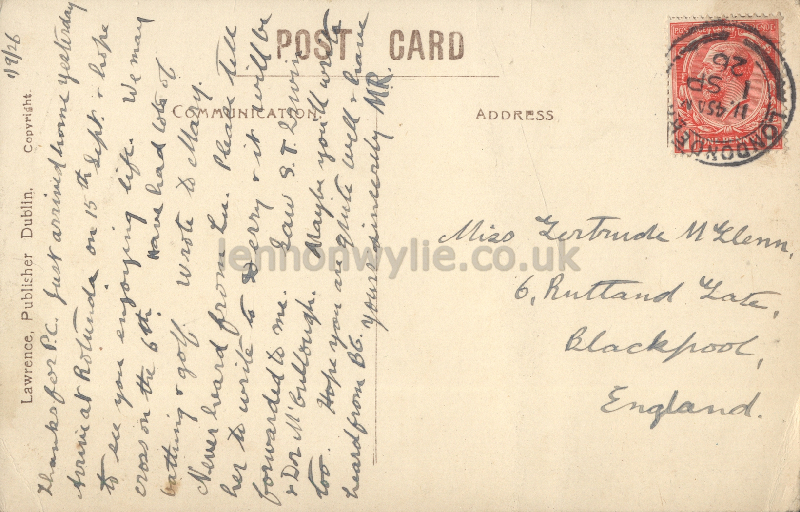 POST CARD
COMMUNICATION.
ADDRESS
Lawrence, Publisher Dublin. Copyright.
1/9/26
Thanks for P.C. Just arrived home yesterday
Arrive at Rotunda on 15th Sept. & hope
to see you enjoying life. We may
cross on the 6th. Have had lots of
bathing & golf. Wrote to Mary.
Never heard from Lu. Please tell
her to write to Derry & it will be
forwarded to me. Saw S.T. Irwin
& Dor McCullough. Maybe you'll write
too. Hope you are quite well & have
heard from BG. yours sincerely MR.
Miss Gertrude McGlenn.
6, Rutland Gate,
Blackpool,
England.
LONDONDERRY
11.45 AM
1 SP
26
lennonwylie.co.uk